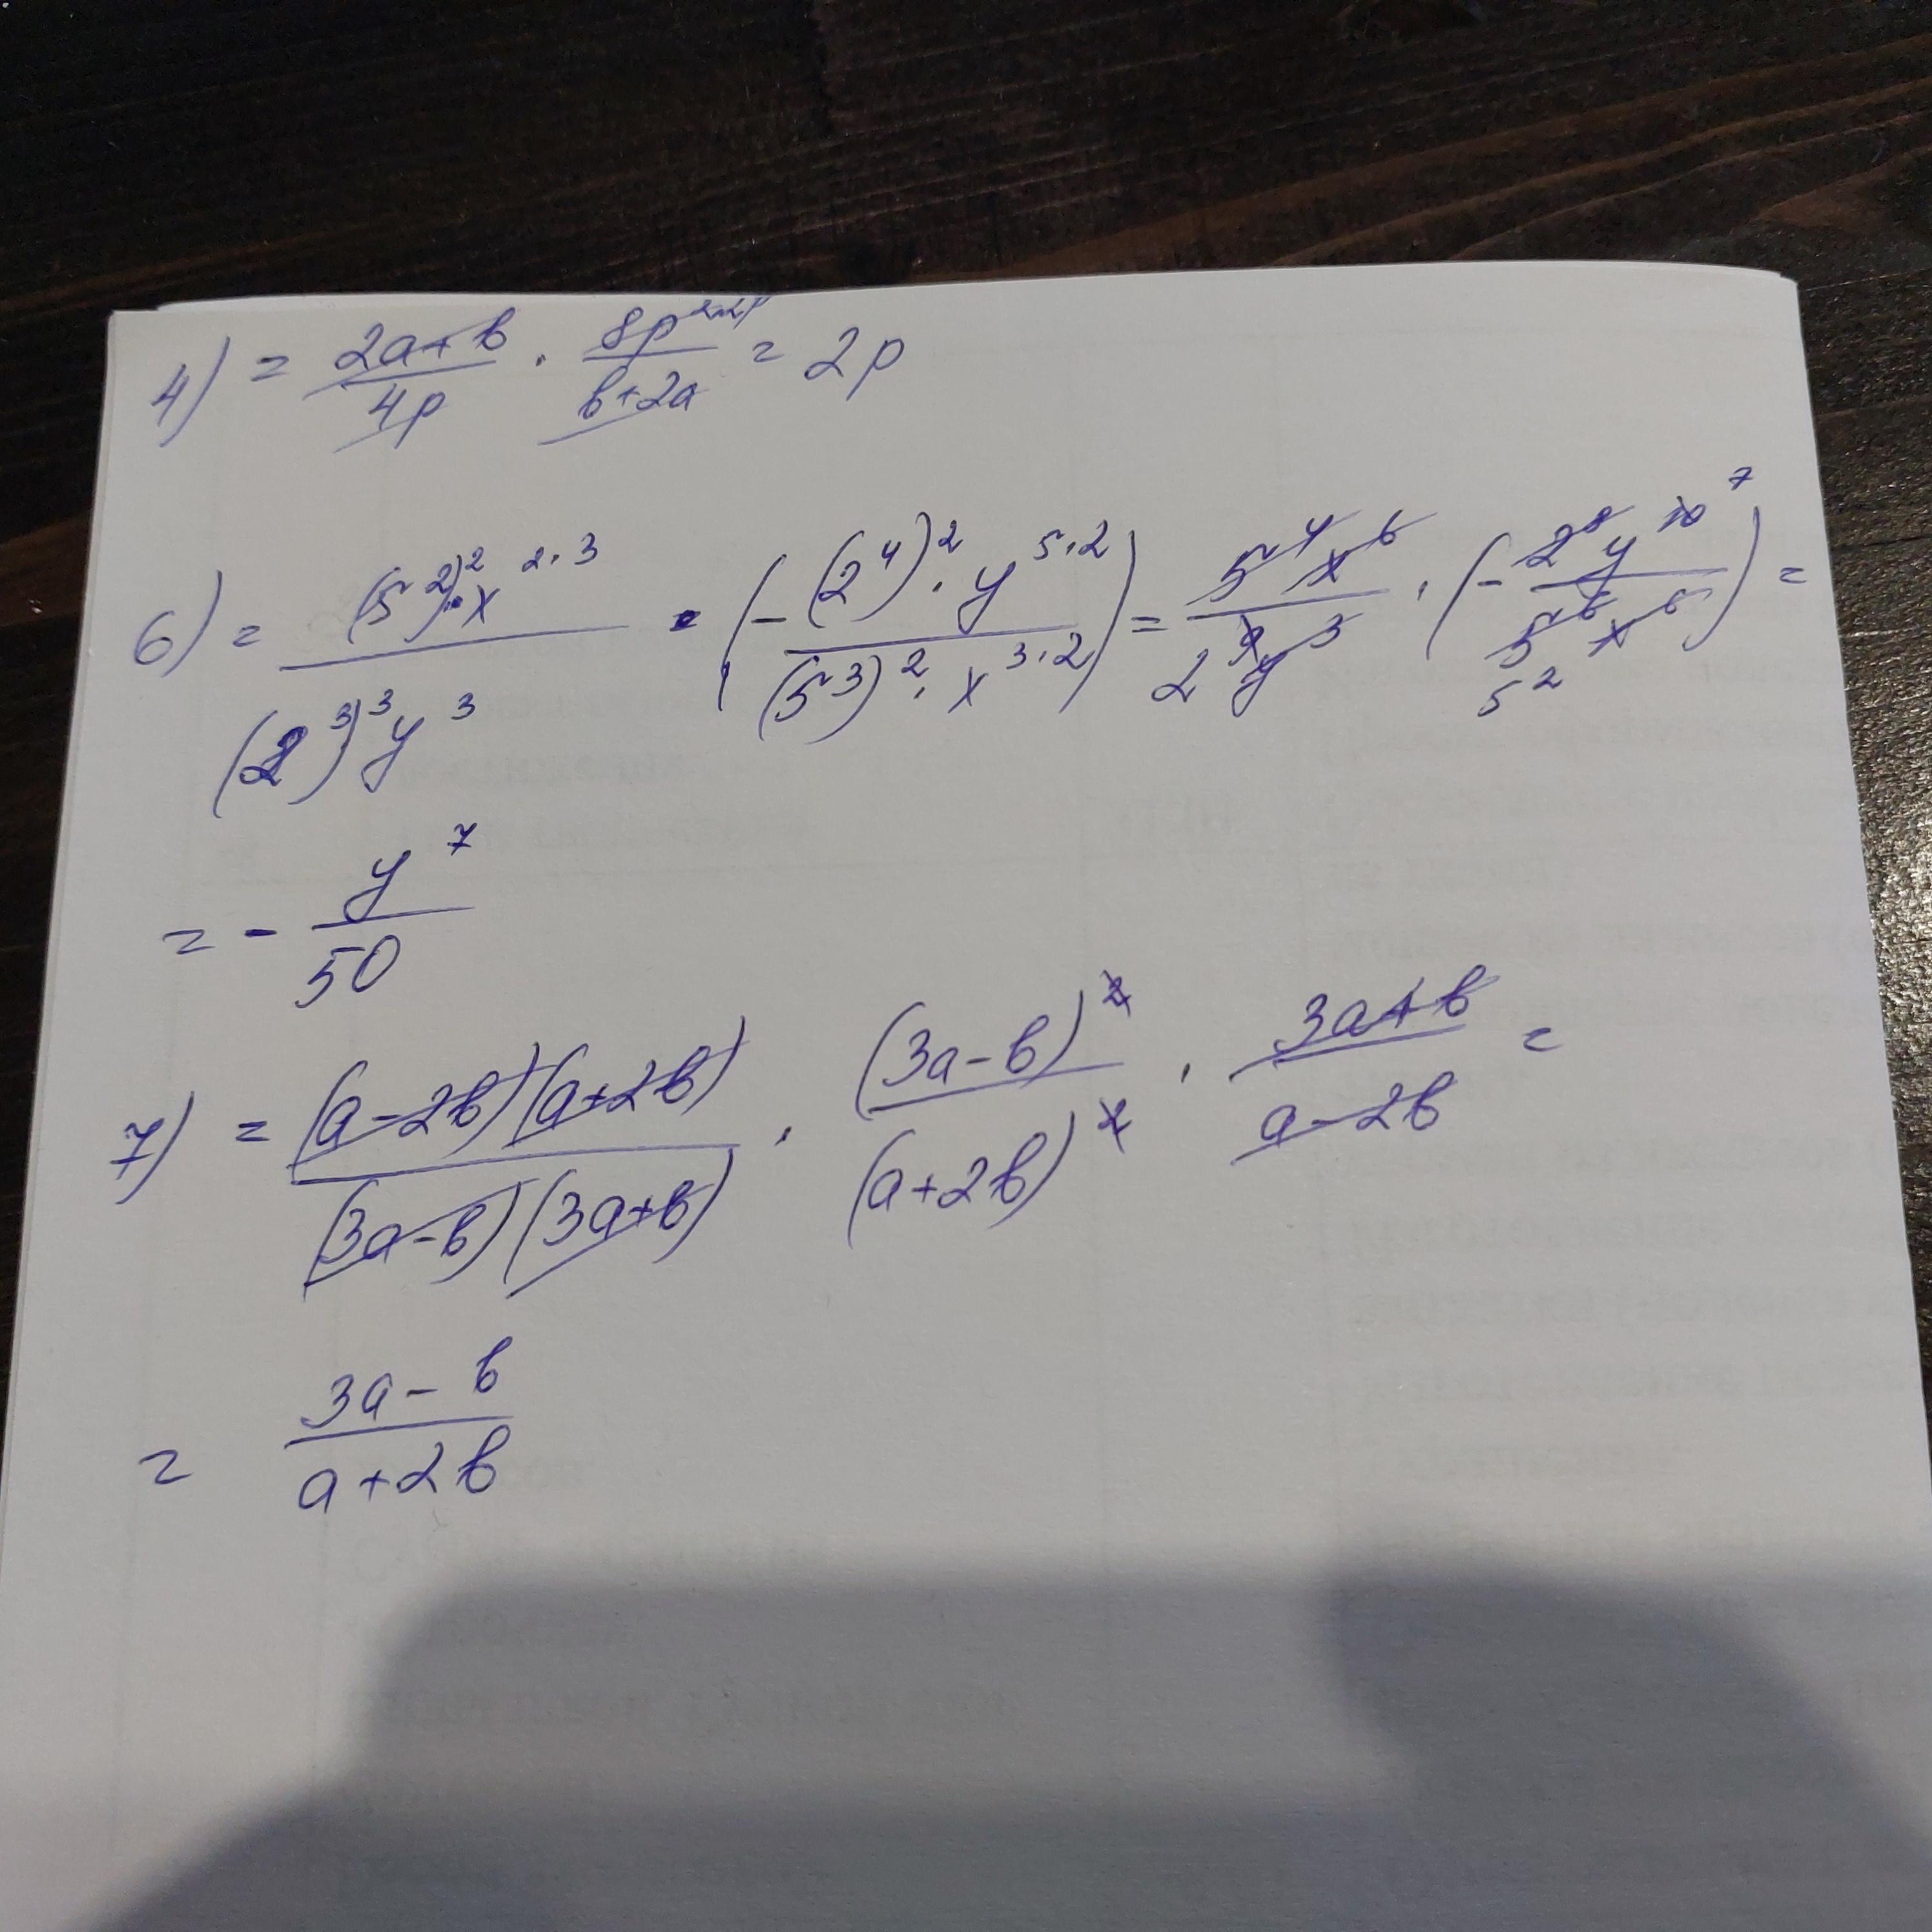 4) = (2a+b)/(4p) · (8p²)/(b+2a) = 2p
6) = ((5²)²·x^(2·3))/((2³)³y³) · (-((2⁴)²·y^(5·2))/((5³)²·x^(3·2))) = (5⁴x⁶)/(2⁹y³) · (-(2⁸y¹⁰ ⁷)/(5⁶x⁶ 5²)) =
= - y⁷/50
7) = ((a-2b)(a+2b))/((3a-b)(3a+b)) · (3a-b)²/(a+2b)² · (3a+b)/(a-2b) =
= (3a-b)/(a+2b)